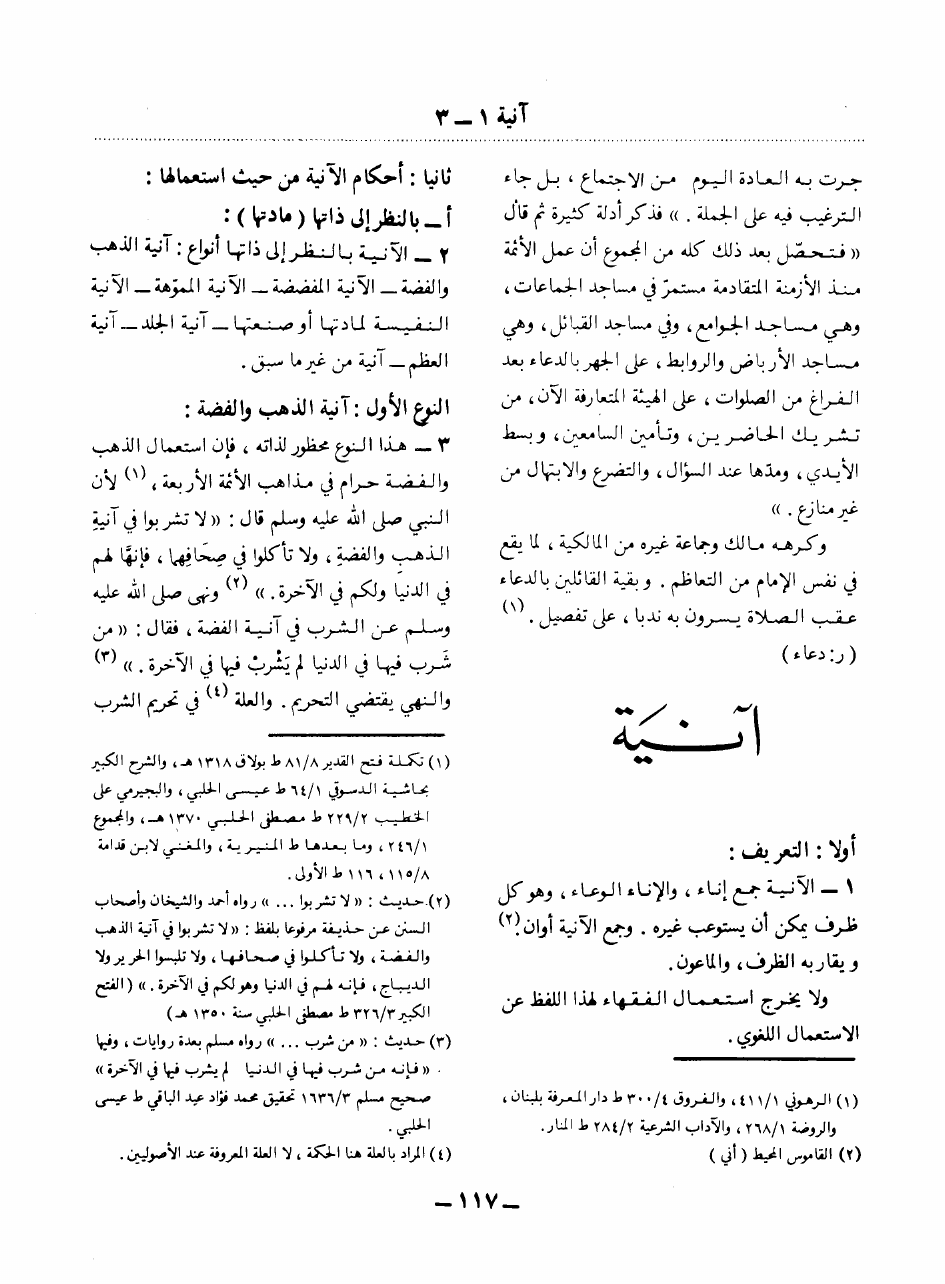 آنية ١ ــ ٣
جرت به العادة اليوم من الاجتماع ، بل جاء
الترغيب فيه على الجملة . » فذكر أدلة كثيرة ثم قال
« فتحصّل بعد ذلك كله من المجموع أن عمل الأئمة
منذ الأزمنة المتقادمة مستمرّ في مساجد الجماعات ،
وهي مساجد الجوامع ، وفي مساجد القبائل ، وهي
مساجد الأرباض والروابط ، على الجهر بالدعاء بعد
الفراغ من الصلوات ، على الهيئة المتعارفة الآن ، من
تشريك الحاضرين ، وتأمين السامعين ، وبسط
الأيدي ، ومدّها عند السؤال ، والتضرع والابتهال من
غير منازع . »
وكرهه مالك وجماعة غيره من المالكية ، لما يقع
في نفس الإمام من التعاظم . وبقية القائلين بالدعاء
عقب الصلاة يسرون به ندبا ، على تفصيل . (١)
( ر : دعاء )
آنِيَة
أولا : التعريف :
١ ــ الآنية جمع إناء ، والإناء الوعاء ، وهو كل
ظرف يمكن أن يستوعب غيره . وجمع الآنية أوان . (٢)
ويقاربه الظرف ، والماعون .
ولا يخرج استعمال الفقهاء لهذا اللفظ عن
الاستعمال اللغوي .
(١) الرهوني ٤١١/١ ، والفروق ٣٠٠/٤ ط دار المعرفة بلبنان ،
والروضة ٢٦٨/١ ، والآداب الشرعية ٢٨٤/٢ ط المنار .
(٢) القاموس المحيط ( أني )
ثانيا : أحكام الآنية من حيث استعمالها :
أ ــ بالنظر إلى ذاتها ( مادتها ) :
٢ ــ الآنية بالنظر إلى ذاتها أنواع : آنية الذهب
والفضة ــ الآنية المفضضة ــ الآنية المموّهة ــ الآنية
النفيسة لمادتها أو صنعتها ــ آنية الجلد ــ آنية
العظم ــ آنية من غير ما سبق .
النوع الأول : آنية الذهب والفضة :
٣ ــ هذا النوع محظور لذاته ، فإن استعمال الذهب
والفضة حرام في مذاهب الأئمة الأربعة ، (١) لأن
النبي صلى الله عليه وسلم قال : « لا تشربوا في آنيةِ
الذهبِ والفضةِ ، ولا تأكلوا في صِحَافِها ، فإنهَّا لهم
في الدنيا ولكم في الآخرة . » (٢) ونهى صلى الله عليه
وسلم عن الشرب في آنية الفضة ، فقال : « من
شَرب فيها في الدنيا لم يَشْربْ فيها في الآخرة . » (٣)
والنهي يقتضي التحريم . والعلة (٤) في تحريم الشرب
(١) تكملة فتح القدير ٨١/٨ ط بولاق ١٣١٨ هـ ، والشرح الكبير
بحاشية الدسوقي ٦٤/١ ط عيسى الحلبي ، والبجيرمي على
الخطيب ٢٢٩/٢ ط مصطفى الحلبي ١٣٧٠ هـ ، والمجموع
٢٤٦/١ ، وما بعدها ط المنيرية ، والمغني لابن قدامة
١١٥/٨ ، ١١٦ ط الأولى .
(٢) حديث : « لا تشربوا ... » رواه أحمد والشيخان وأصحاب
السنن عن حذيفة مرفوعا بلفظ : « لا تشربوا في آنية الذهب
والفضة ، ولا تأكلوا في صحافها ، ولا تلبسوا الحرير ولا
الديباج ، فإنه لهم في الدنيا وهو لكم في الآخرة . » (الفتح
الكبير ٣٢٦/٣ ط مصطفى الحلبي سنة ١٣٥٠ هـ )
(٣) حديث : « من شرب ... » رواه مسلم بعدة روايات ، وفيها
« فإنه من شرب فيها في الدنيا لم يشرب فيها في الآخرة »
صحيح مسلم ١٦٣٦/٣ تحقيق محمد فؤاد عبد الباقي ط عيسى
الحلبي .
(٤) المراد بالعلة هنا الحكمة ، لا العلة المعروفة عند الأصوليين .
ــ ١١٧ ــ